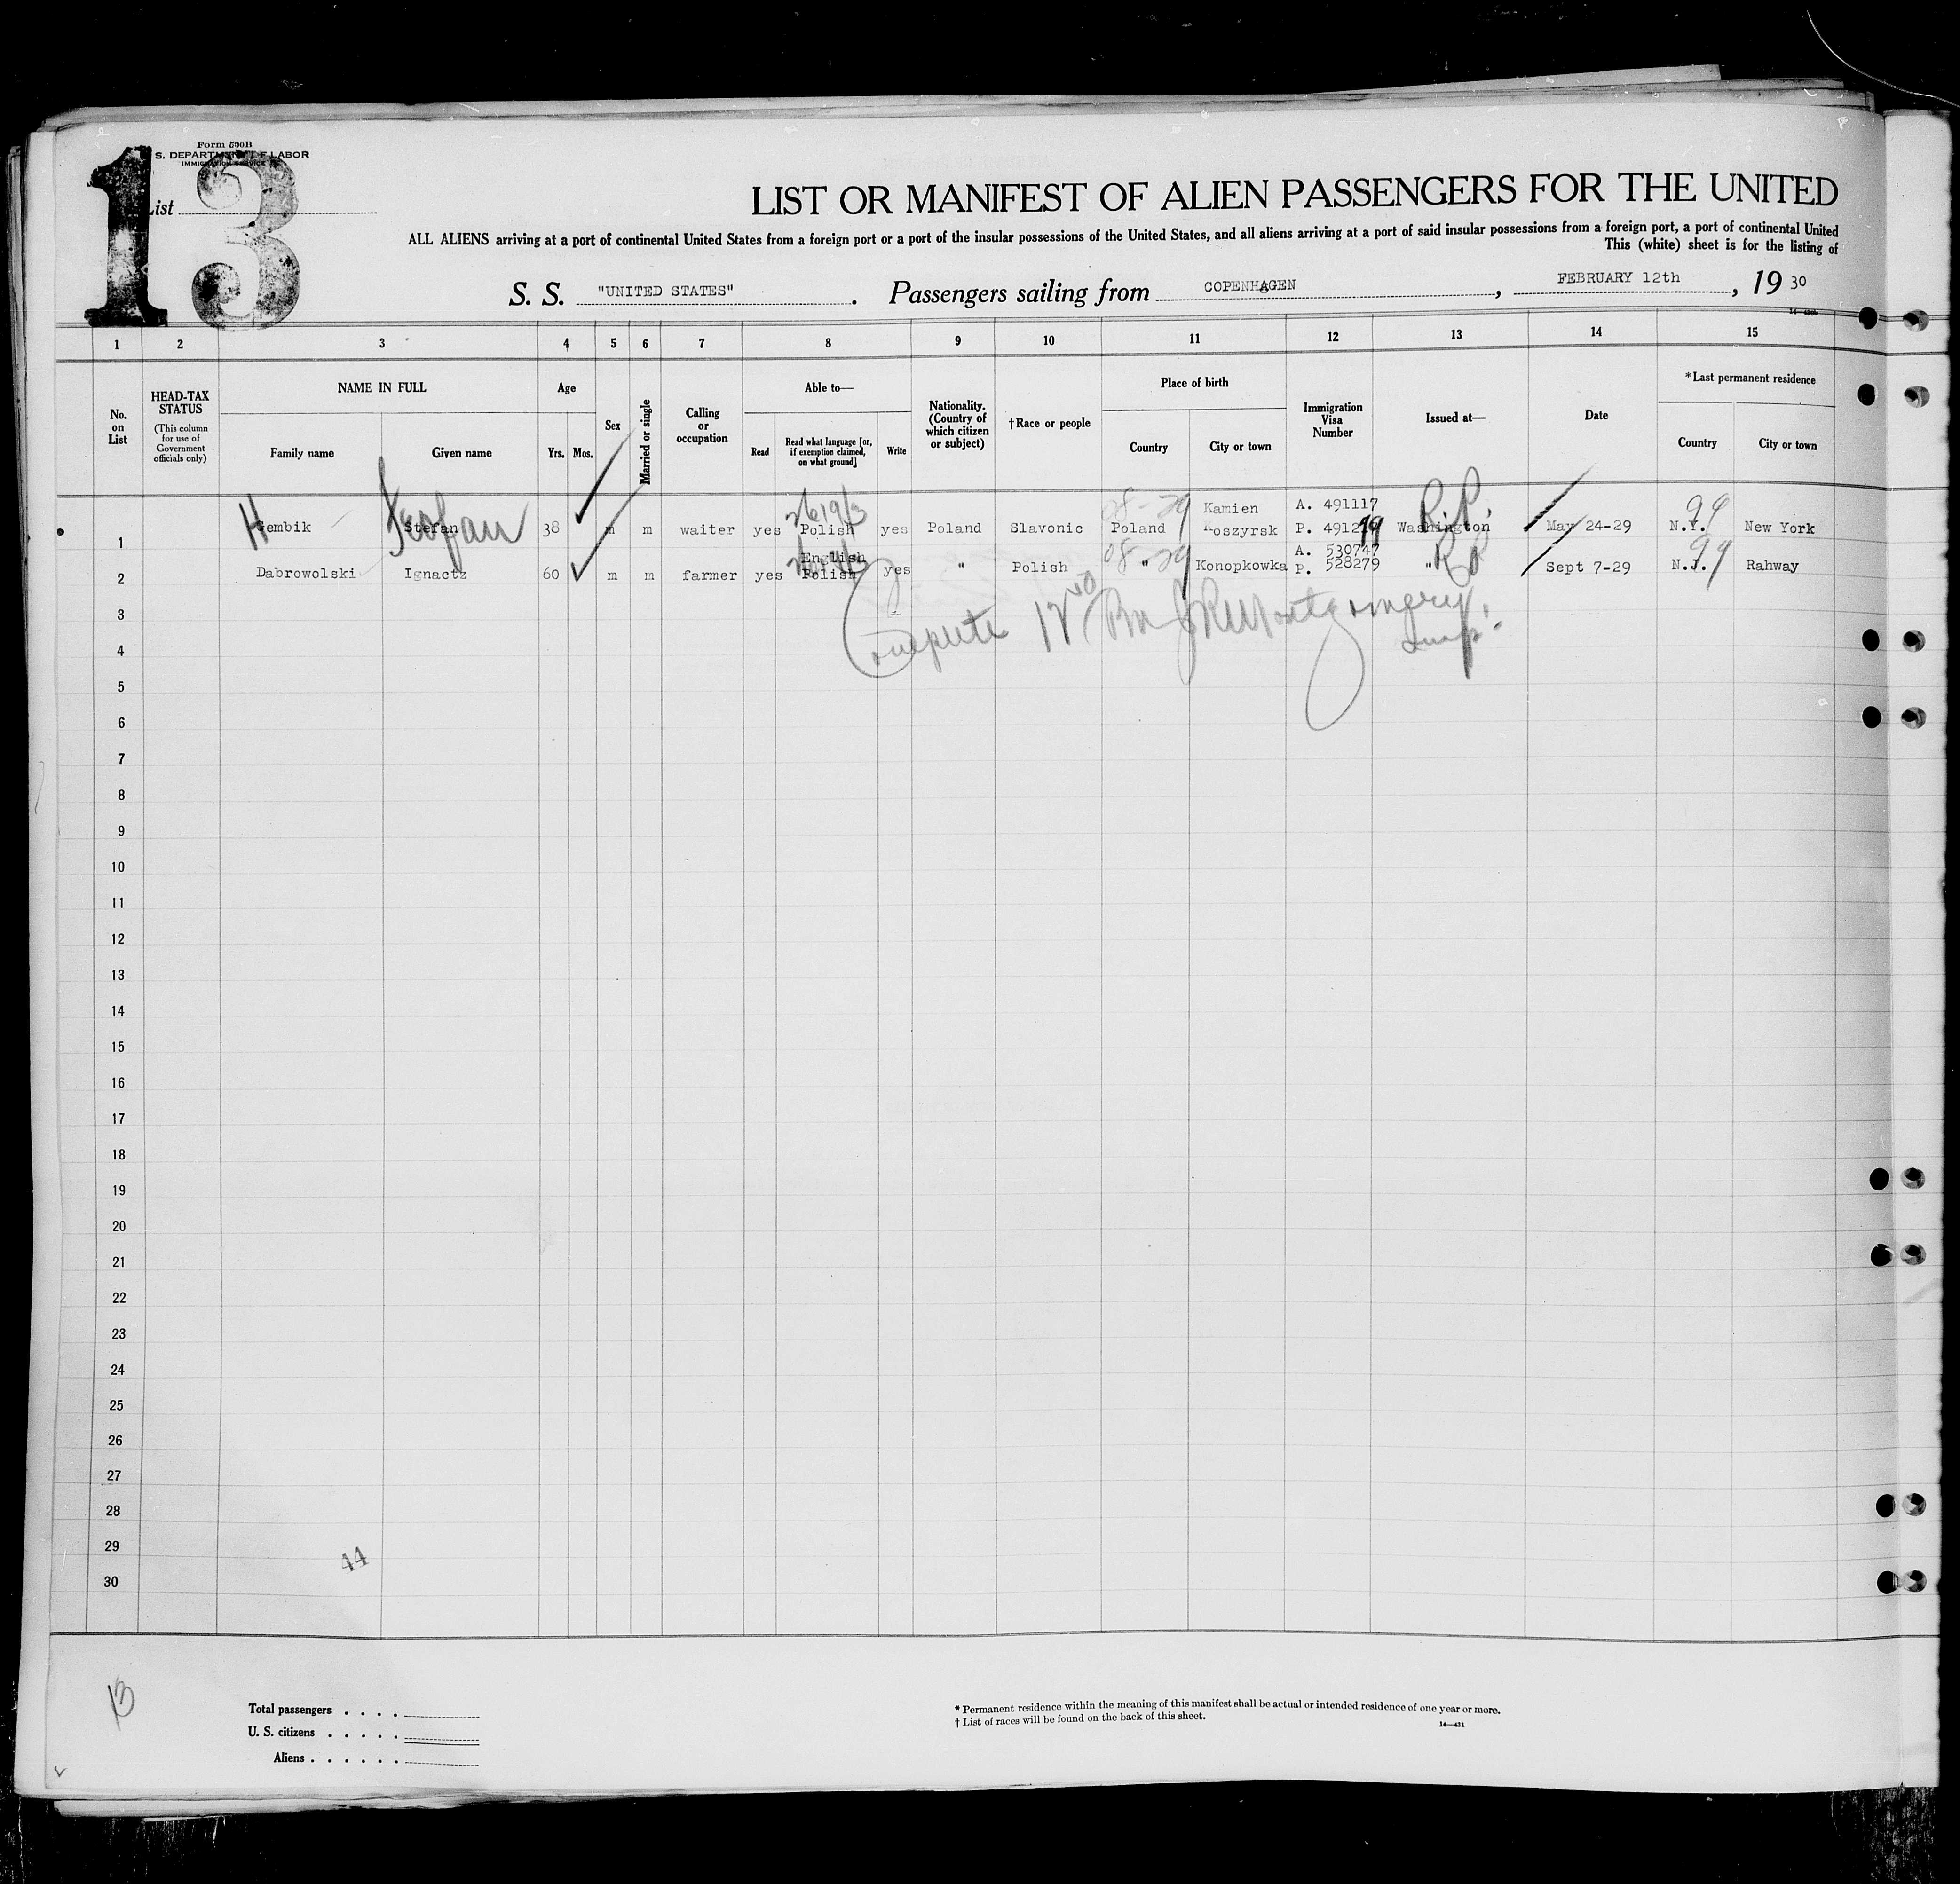 Form 500B
S. DEPARTMENT OF LABOR
IMMIGRATION SERVICE
13
List
LIST OR MANIFEST OF ALIEN PASSENGERS FOR THE UNITED
ALL ALIENS arriving at a port of continental United States from a foreign port or a port of the insular possessions of the United States, and all aliens arriving at a port of said insular possessions from a foreign port, a port of continental United
This (white) sheet is for the listing of
S. S. "UNITED STATES". Passengers sailing from COPENHAGEN, FEBRUARY 12th, 1930
1 2 3 4 5 6 7 8 9 10 11 12 13 14 15
No. on List
HEAD-TAX STATUS
(This column for use of Government officials only)
NAME IN FULL
Family name Given name
Age
Yrs. Mos.
Sex
Married or single
Calling or occupation
Able to—
Read
Read what language [or, if exemption claimed, on what ground]
Write
Nationality. (Country of which citizen or subject)
†Race or people
Place of birth
Country City or town
Immigration Visa Number
Issued at—
Date
*Last permanent residence
Country City or town
08-29 Kamien A. 491117 R.P. 99
1 Hembik Stefan 38 m m waiter yes Polish yes Poland Slavonic Poland Koszyrsk P. 491219 Washington May 24-29 N.Y. New York
English 08-29 A. 530747 RP 99
2 Dabrowolski Ignactz 60 m m farmer yes Polish yes " Polish " Konopkowka P. 528279 " Sept 7-29 N.J. Rahway
Montgomery
Insp.
3
4
5
6
7
8
9
10
11
12
13
14
15
16
17
18
19
20
21
22
23
24
25
26
27
28
29
44
30
13
Total passengers . . . .
U. S. citizens . . . . .
Aliens . . . . . .
* Permanent residence within the meaning of this manifest shall be actual or intended residence of one year or more.
† List of races will be found on the back of this sheet.
14—431